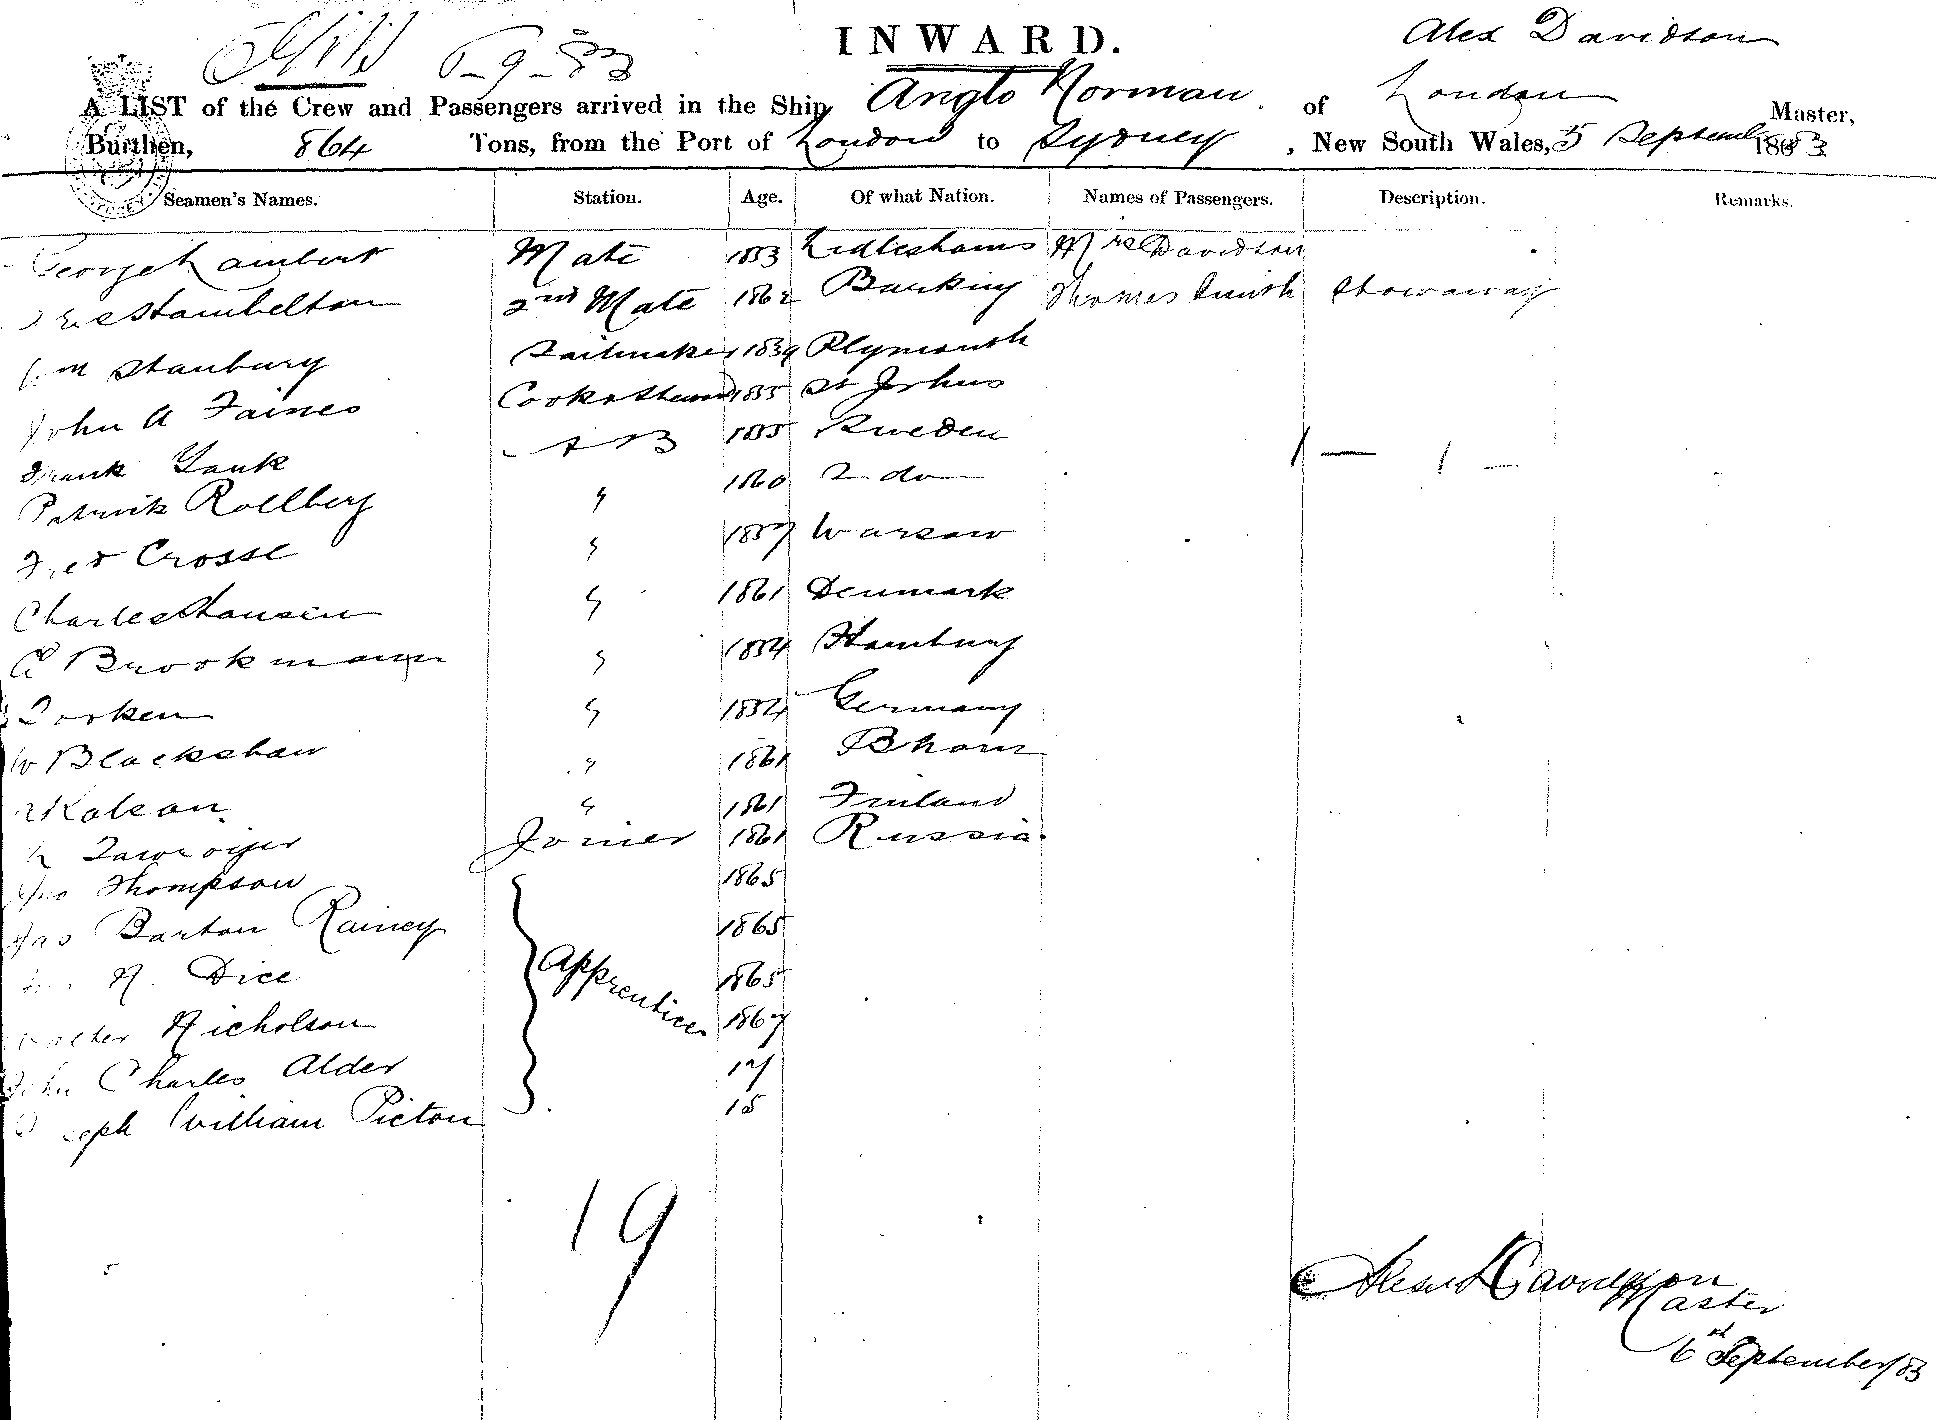 6-9-83
INWARD.
Alex Davidson
A LIST of the Crew and Passengers arrived in the Ship Anglo Norman of London Master,
Burthen, 864 Tons, from the Port of London to Sydney, New South Wales, 5 September 1883
Seamen's Names. Station. Age. Of what Nation. Names of Passengers. Description. Remarks.
George Lambert Mate 1853 Mrs Davidson
Stambelton 2nd Mate 1862 Barking Thomas Smith Stowaway
Wm Stanbury Sailmaker 1839 Plymouth
John A Faines Cook & Steward 1855 St Johns
Frank Yank A B 1855 Sweden
Patrick Rollberg " 1860 do
Fred Crosse " 1857 Warsaw
Charles Hansen " 1861 Denmark
C Brookmann " 1854 Hamburg
Torken " 1854 Germany
W Blackshaw " 1861
" 1861 Finland
Joiner 1861 Russia.
Jno Thompson 1865
Jas Barton Rainey 1865
N. Dice Apprentices 1865
Walter Nicholson 1867
John Charles Alder 17
Joseph William Picton 15
1 — 1 —
19
Alexr Davidson
Master
6th September/83